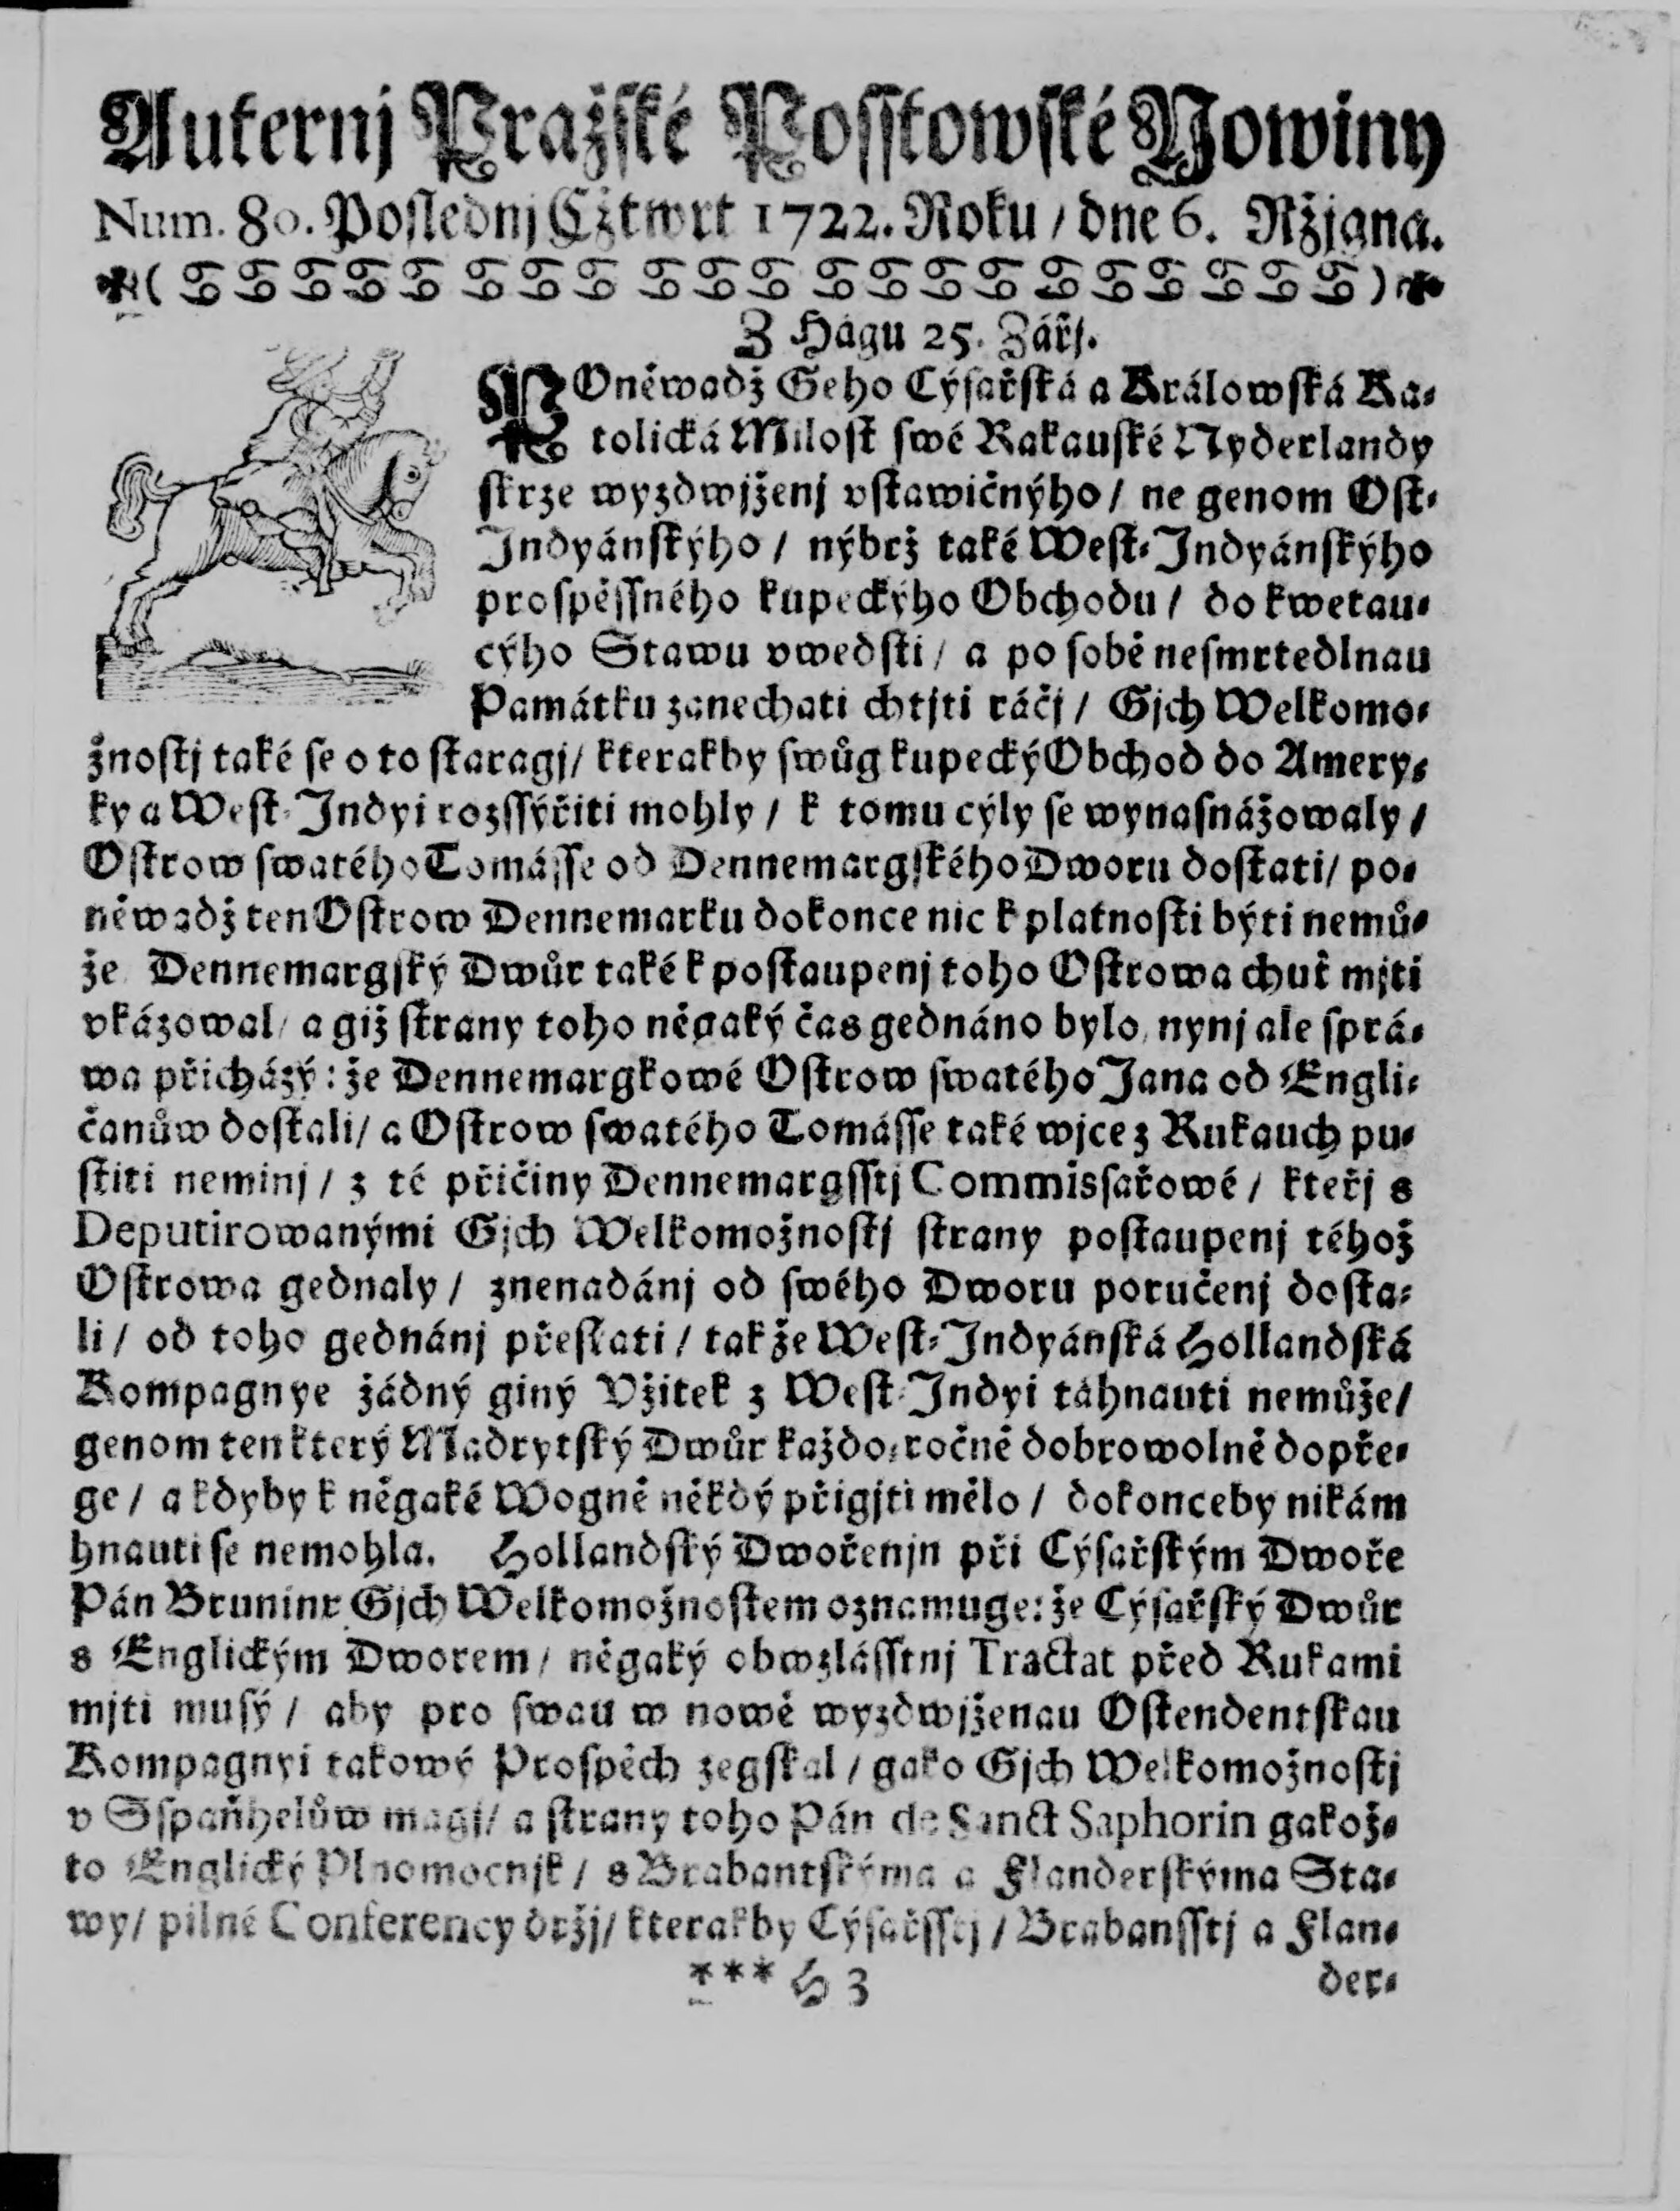 Auternj Pražské Posstowské Nowiny
Num. 80. Poslednj Cžtwrt 1722. Roku / dne 6. Ržjgna.
Z Hágu 25. Zářj.
POněwadž Geho Cýsařská a Králowská Ka-
tolická Milost swé Rakauské Nyderlandy
skrze wyzdwjženj vstawičnýho / ne genom Ost-
Indyánskýho / nýbrž také West-Indyánskýho
prospěssného kupeckýho Obchodu / do kwetau-
cýho Stawu vwedsti / a po sobě nesmrtedlnau
Památku zanechati chtjti ráčj / Gjch Welkomo-
žnostj také se o to staragj / kterakby swůg kupecký Obchod do Amery-
ky a West-Indyi rozssýřiti mohly / k tomu cýly se wynasnážowaly /
Ostrow swatého Tomásse od Dennemargského Dworu dostati / po-
něwadž ten Ostrow Dennemarku dokonce nic k platnosti býti nemů-
že Dennemargský Dwůr také k postaupenj toho Ostrowa chuť mjti
vkázowal / a giž strany toho něgaký čas gednáno bylo, nynj ale sprá-
wa přicházý: že Dennemargkowé Ostrow swatého Jana od Engli-
čanůw dostali / a Ostrow swatého Tomásse také wjce z Rukauch pu-
stiti neminj / z té přičiny Dennemargsstj Commissařowé / kteřj s
Deputirowanými Gjch Welkomožnostj strany postaupenj téhož
Ostrowa gednaly / znenadánj od swého Dworu poručenj dosta-
li / od toho gednánj přestati / takže West-Indyánská Hollandská
Kompagnye žádný giný Vžitek z West-Indyi táhnauti nemůže /
genom ten který Madrytský Dwůr každo-ročně dobrowolně dopře-
ge / a kdyby k něgaké Wogně někdý přigjti mělo / dokonceby nikám
hnauti se nemohla. Hollandský Dwořenjn při Cýsařským Dwoře
Pán Bruninx Gjch Welkomožnostem oznamuge: že Cýsařský Dwůr
s Englickým Dworem / něgaký obwzlásstnj Tractat před Rukami
mjti musý / aby pro swau w nowě wyzdwjženau Ostendentskau
Kompagnyi takowý Prospěch zegskal / gako Gjch Welkomožnostj
v Sspaňhelůw magj / a strany toho Pán de Sanct Saphorin gakož-
to Englický Plnomocnjk / s Brabantskýma a Flanderskýma Sta-
wy / pilné Conferency držj / kterakby Cýsařsstj / Brabansstj a Flan-
*** H 3 der-